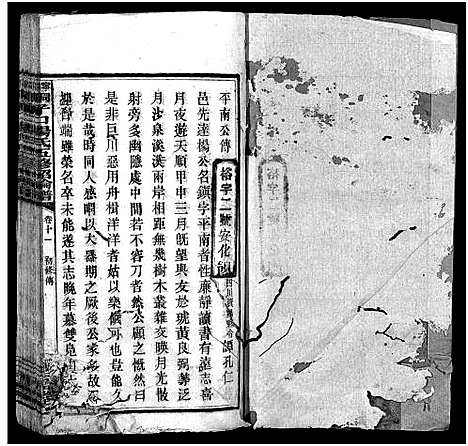 平南公傳
裕字二號安化領
源孔仁
邑先達楊公名鎮字平南者性廉靜讀書有遠志喜
月夜遊天順甲申三月既望與友於琥黃良弼等泛
月沙泉溪溪兩岸相距無幾樹木叢雜交映月光散
射旁多幽隱處中間若不容刀者然公顧之慨然曰
是非巨川惡用舟楫洋洋者姑以樂饑可也豈能久
於是哉時同人感嘲以大器期之厥後公家多故不
端雖榮名卒未能遂其志晚年慕雙鳧
楊氏五修
譜
卷十一
初修傳